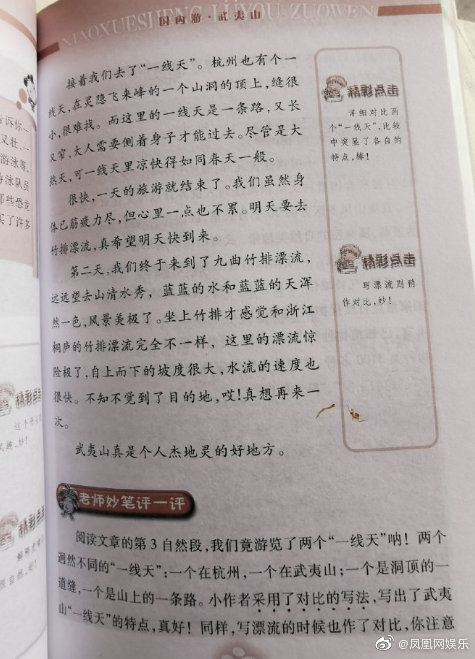 XIAOXUESHENG LÜYOU ZUOWEN
国内游·武夷山
接着我们去了“一线天”。杭州也有个一
线天,在灵隐飞来峰的一个山洞的顶上,缝很
小,很难找。而这里的一线天是一条路,又长
又窄,大人需要侧着身子才能过去。尽管是大
热天,可一线天里凉快得如同春天一般。
很快,一天的旅游就结束了。我们虽然身
体已筋疲力尽,但心里一点也不累。明天要去
竹排漂流,真希望明天快到来。
第二天,我们终于来到了九曲竹排漂流,
远远望去山清水秀,蓝蓝的水和蓝蓝的天浑
然一色,风景美极了。坐上竹排才感觉和浙江
桐庐的竹排漂流完全不一样,这里的漂流惊
险极了,自上而下的坡度很大,水流的速度也
很快。不知不觉到了目的地,哎!真想再来一
次。
武夷山真是个人杰地灵的好地方。
精彩点击
详细对比两
个“一线天”,比较
中突显了各自的
特点,棒!
精彩点击
写漂流则时
作对比,妙!
老师妙笔评一评
阅读文章的第3自然段,我们竟游览了两个“一线天”呐!两个
迥然不同的“一线天”:一个在杭州,一个在武夷山;一个是洞顶的一
道缝,一个是山上的一条路。小作者采用了对比的写法,写出了武夷
山“一线天”的特点,真好!同样,写漂流的时候也作了对比,你注意
告诉你一
又壮,一
游泳等。
游泳队员
那些恐龙
买了许多
@凤凰网娱乐